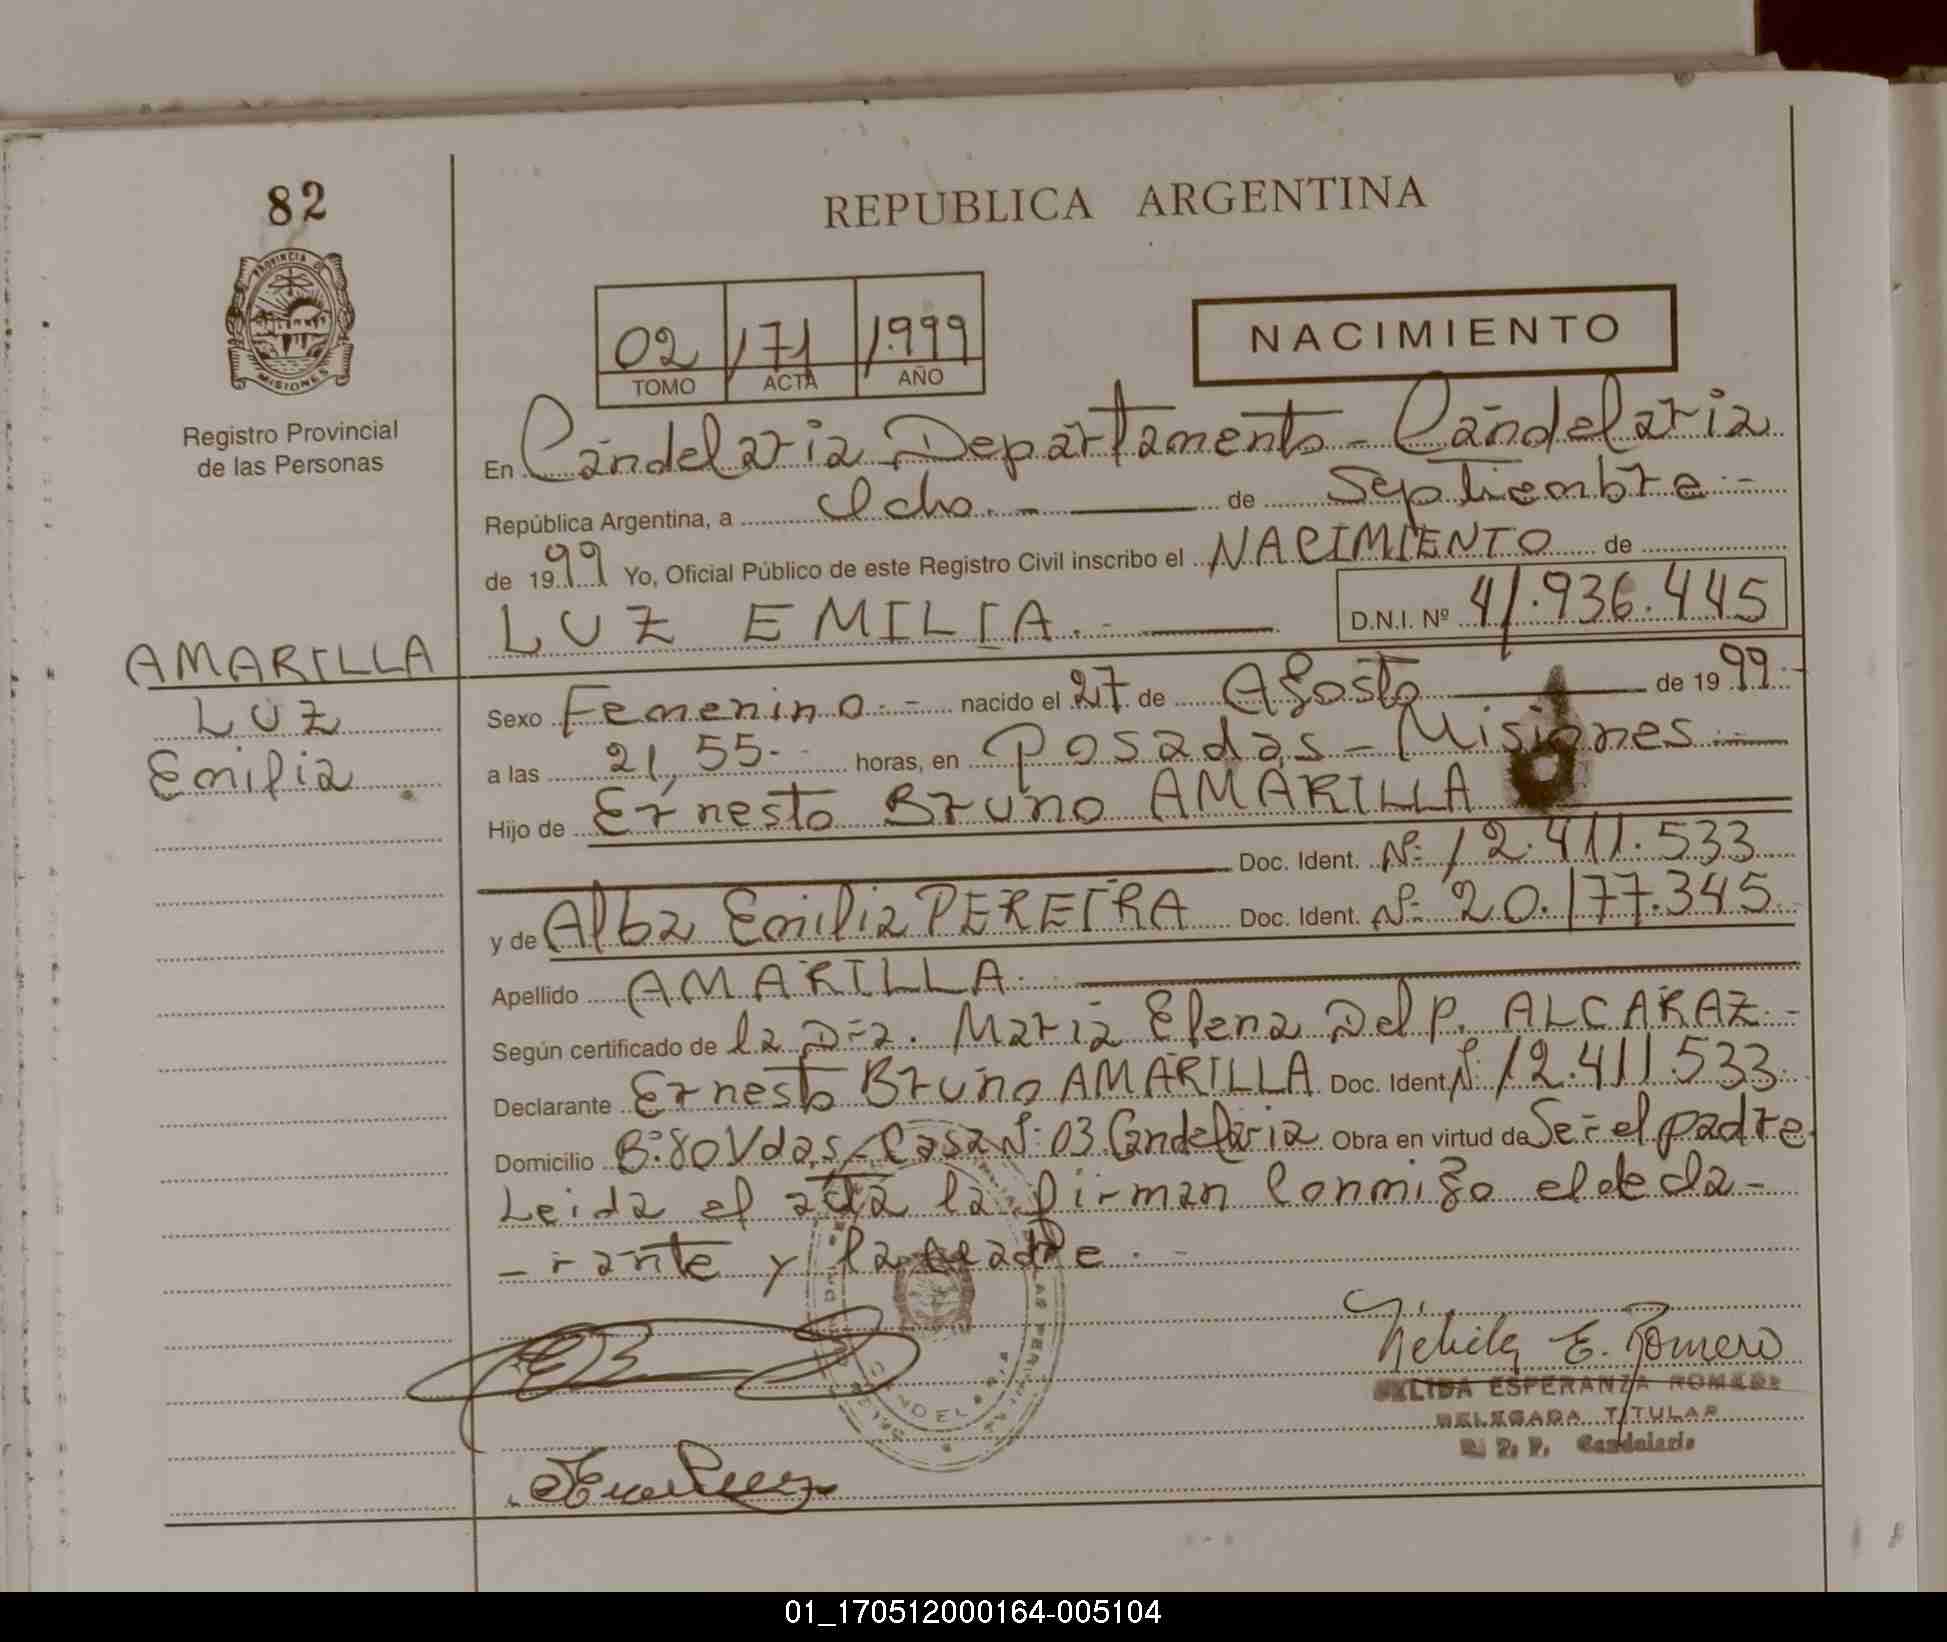 82
REPUBLICA ARGENTINA
PROVINCIA DE
MISIONES
Registro Provincial
de las Personas
02 171 1.999
TOMO ACTA AÑO
NACIMIENTO
En Candelaria Departamento - Candelaria
República Argentina, a Ocho. - de Septiembre -
de 1999 Yo, Oficial Público de este Registro Civil inscribo el NACIMIENTO de
LUZ EMILIA. - D.N.I. Nº 41.936.445
AMARILLA
LUZ
Emilia
Sexo Femenino. - nacido el 27 de Agosto de 1999.-
a las 21,55- horas, en Posadas - Misiones -
Hijo de Ernesto Bruno AMARILLA
Doc. Ident. Nº 12.411.533
y de Alba Emilia PEREIRA Doc. Ident. Nº 20.177.345
Apellido AMARILLA
Según certificado de la Dra. Maria Elena Del P. ALCARAZ. -
Declarante Ernesto Bruno AMARILLA Doc. Ident. Nº 12.411.533
Domicilio Bº 80 Vdas - Casa Nº 03 Candelaria Obra en virtud de Ser el padre
Leida el acta la firman Conmigo el decla-
-rante y la madre. -
Nélida E. Romero
NELIDA ESPERANZA ROMERO
DELEGADA TITULAR
R. P. P. Candelaria
01_170512000164-005104